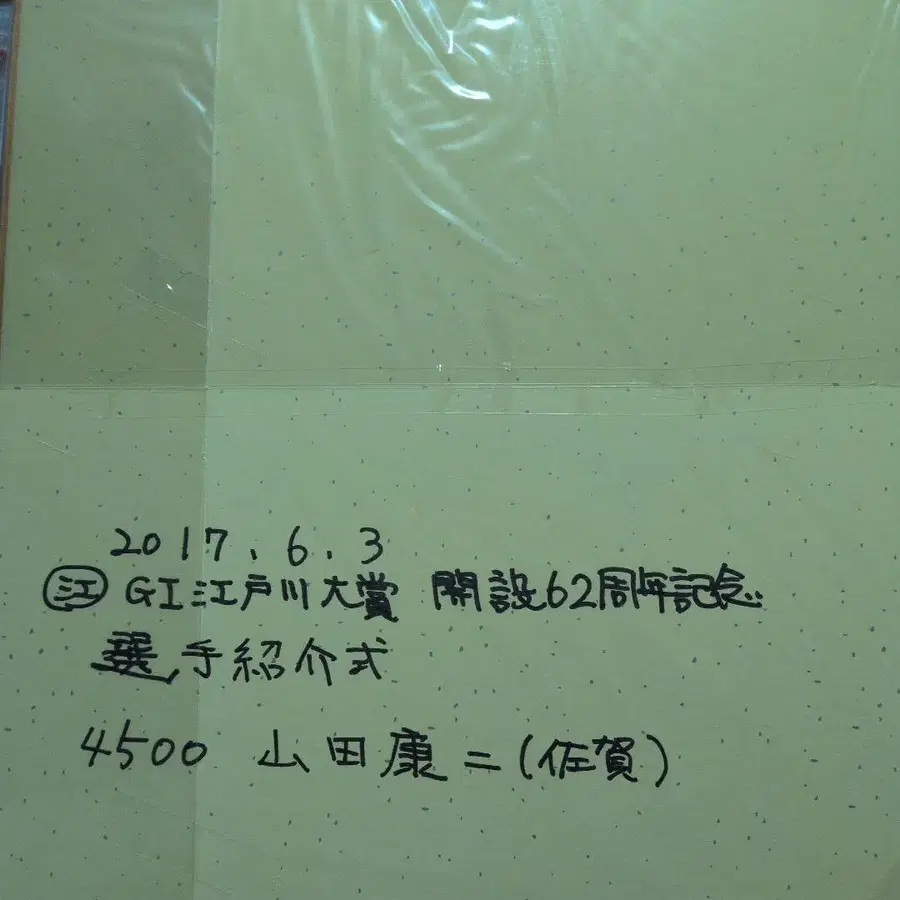 2017.6.3
㋓ GI江戸川大賞 開設62周年記念
選手紹介式
4500 山田康二(佐賀)